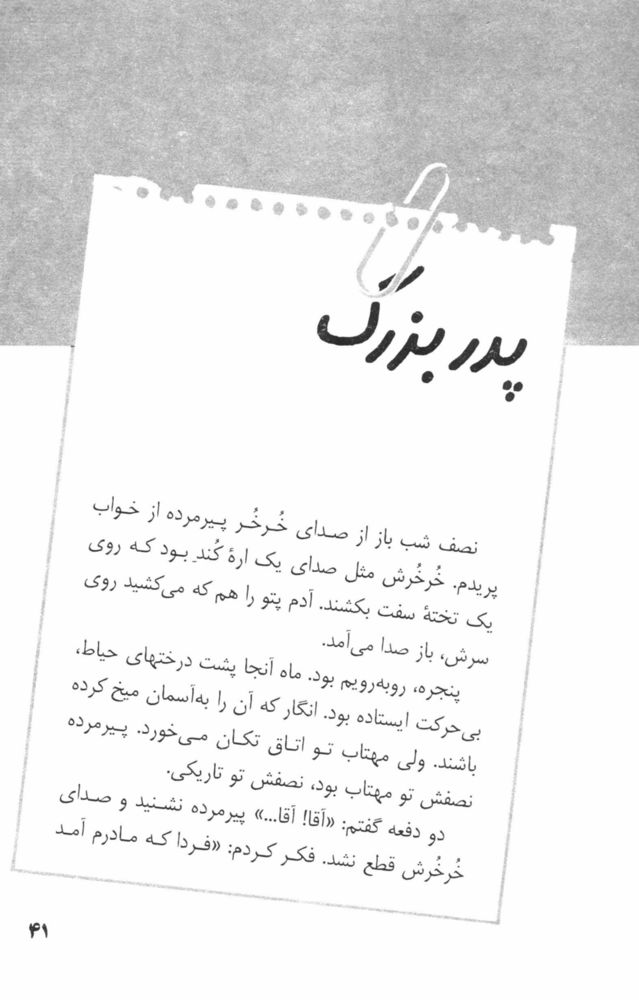 پدربزرگ
نصف شب باز از صدای خُرخُر پیرمرده از خواب
پریدم. خُرخُرش مثل صدای یک ارهٔ کُندِ بود که روی
یک تختهٔ سفت بکشند. آدم پتو را هم که می‌کشید روی
سرش، باز صدا می‌آمد.
پنجره، روبه‌رویم بود. ماه آنجا پشت درختهای حیاط،
بی‌حرکت ایستاده بود. انگار که آن را به‌آسمان میخ کرده
باشند. ولی مهتاب تو اتاق تکان می‌خورد. پیرمرده
نصفش تو مهتاب بود، نصفش تو تاریکی.
دو دفعه گفتم: «آقا! آقا...» پیرمرده نشنید و صدای
خُرخُرش قطع نشد. فکر کردم: «فردا که مادرم آمد
۴۱